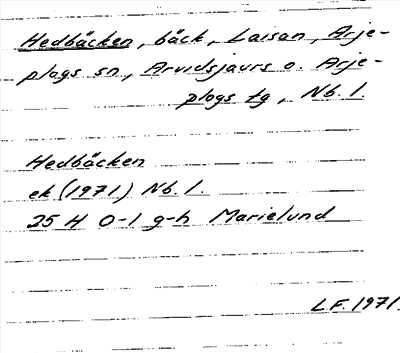 Hedbäcken, bäck, Laisan, Arje-
plogs sn, Arvidsjaurs o. Arje-
plogs tg, Nb. l.
Hedbäcken
ek (1971) Nb. l.
25 H 0-1 g-h Marielund
L.F. 1971.